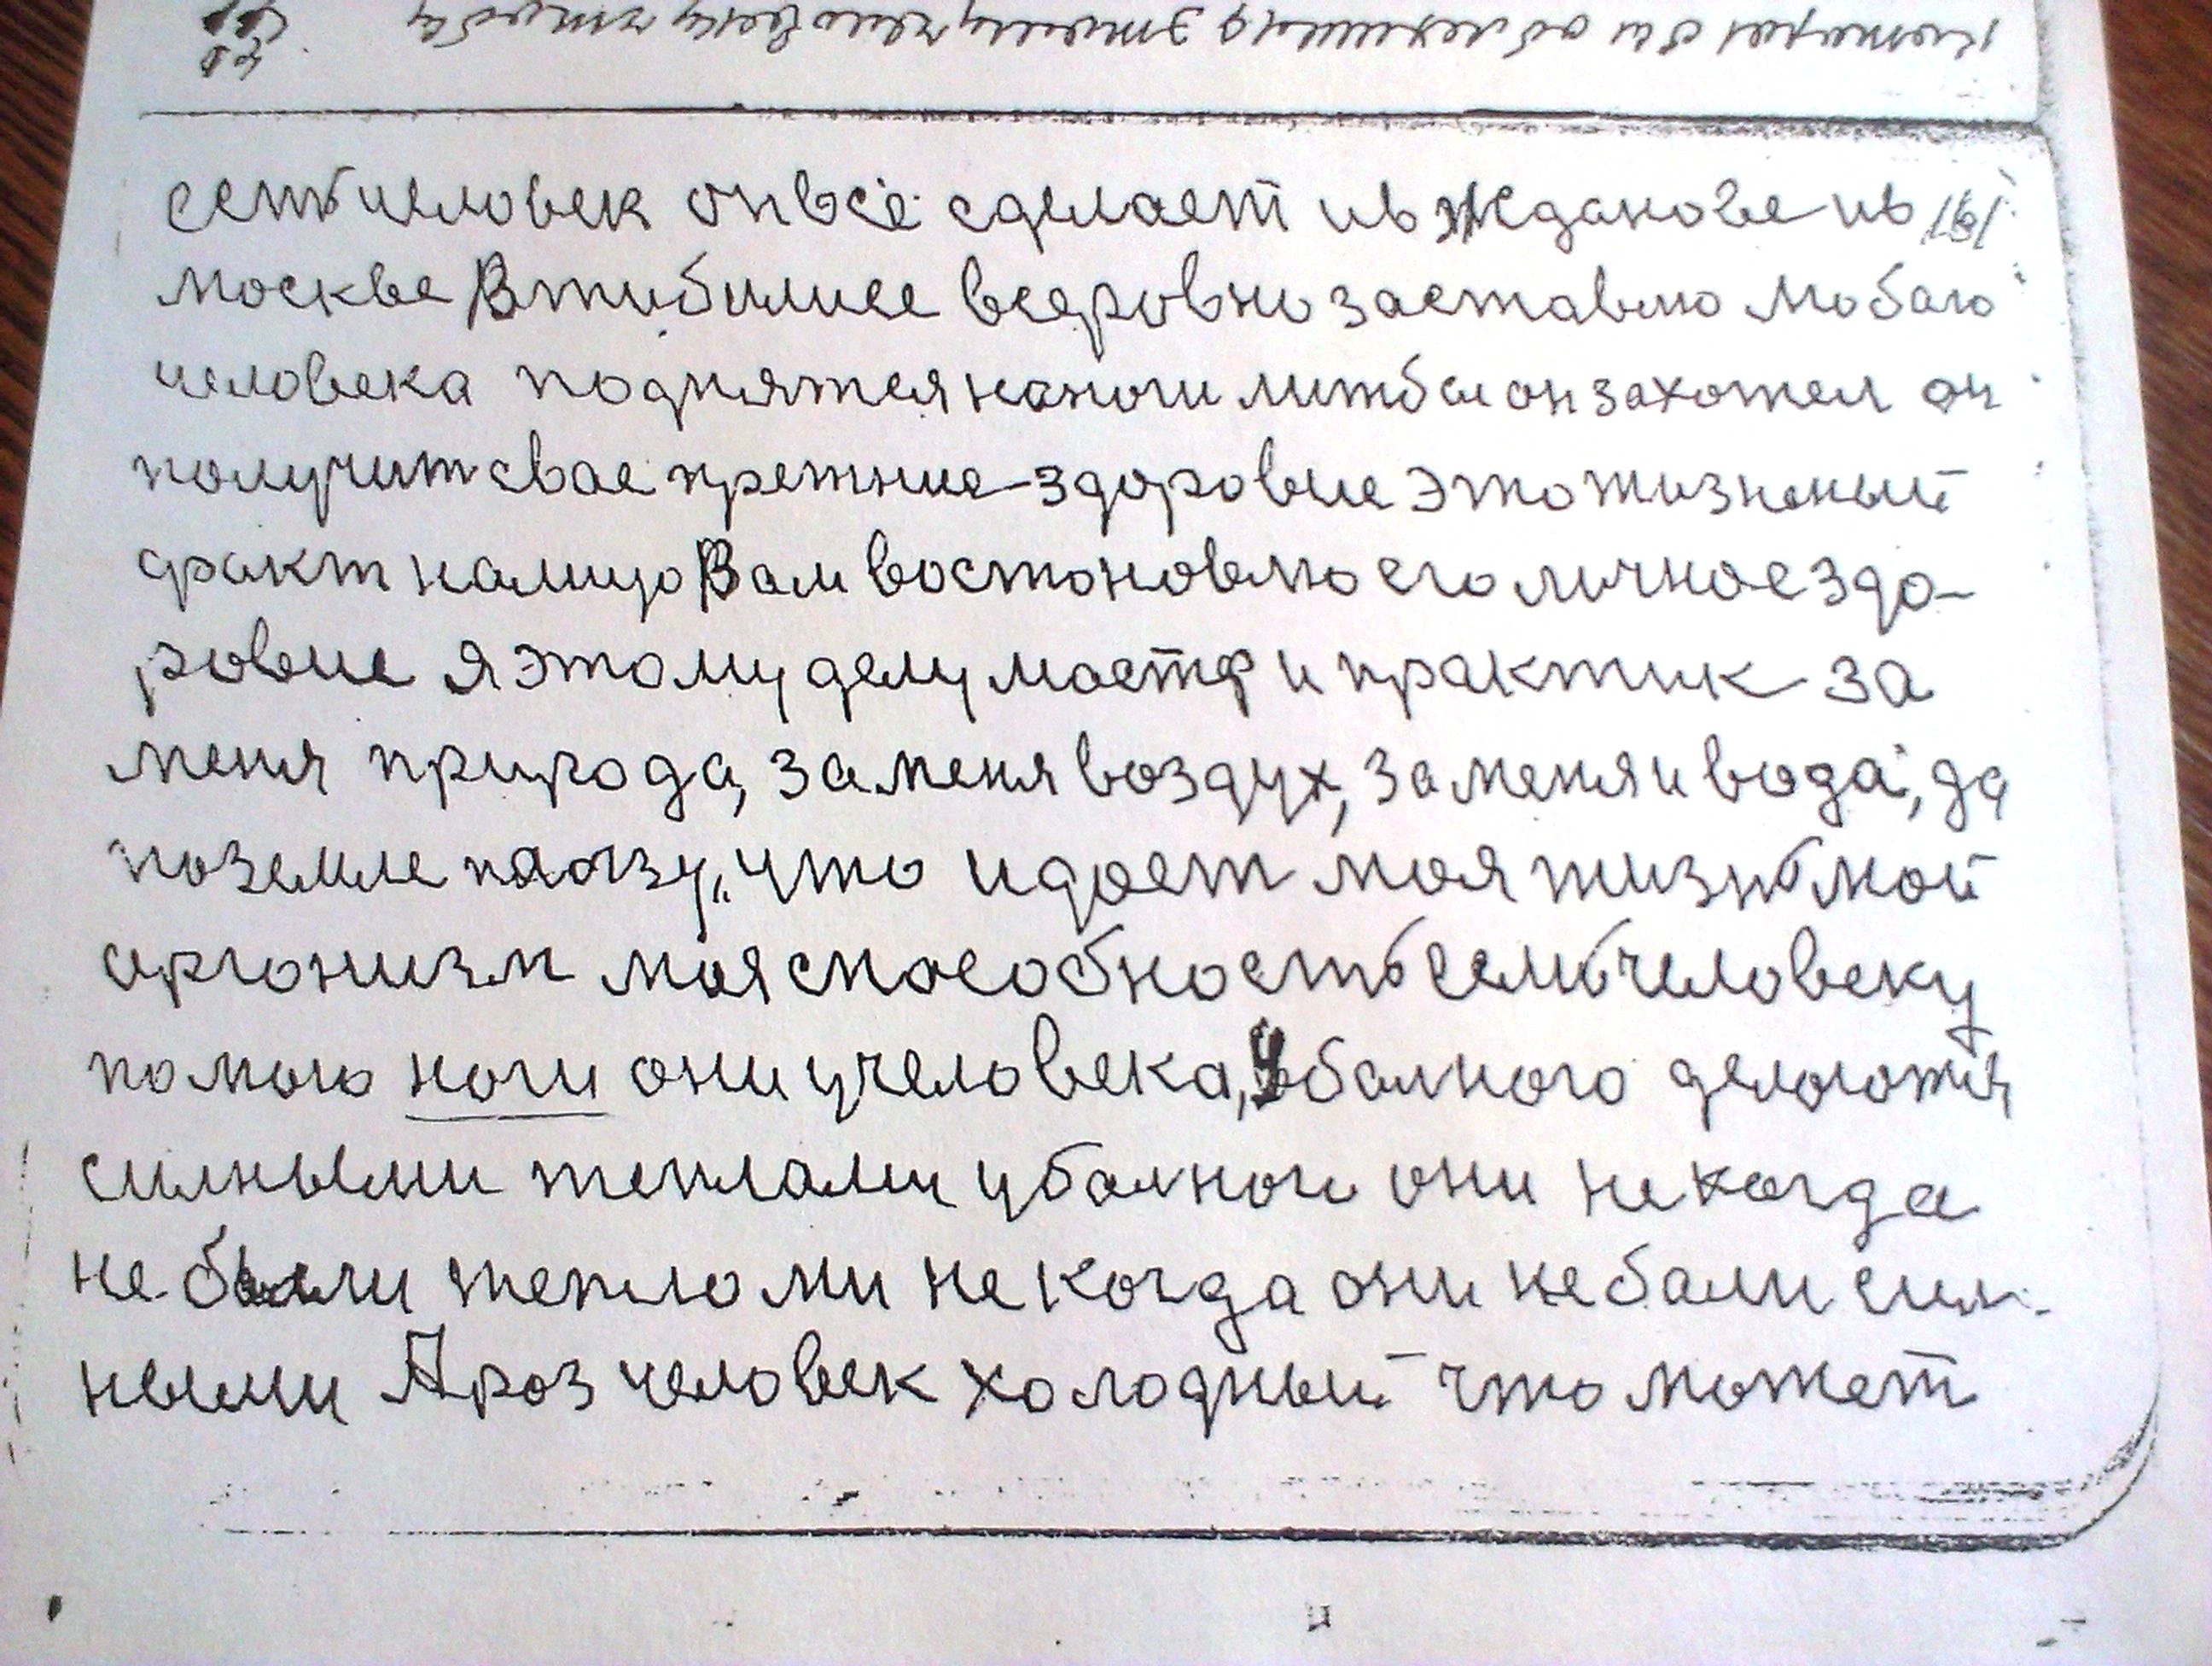 семь человек он всё сделает и в Жданове и в
москве В тибилисе всеровно заставлю любаго
человека поднятся на ноги литбы он захотел он
получит свае претние здоровие это тизненый
факт на лицо Вам востоновлю его личное здо-
ровие я этому делу мастер и практик за
меня природа, за меня воздух, за меня и вода, да
по земле полозу, что и дает моя тизнь мой
аргонизм моя способность семь человеку
помою ноги они у человека, у балного делаются
силными теплами у балног они не когда
не были тепломи не когда они не бали сил-
ными А роз человек холодный что мотет